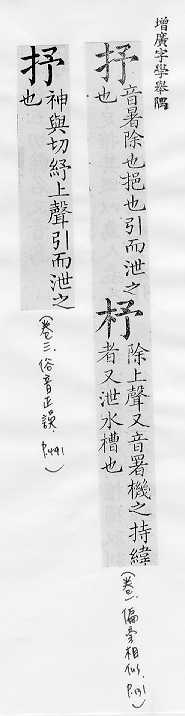 增廣字學舉隅
抒 音暑除也挹也引而泄之
也
杼 除上聲又音署機之持緯
者又泄水槽也
(卷二．偏旁相似．P.191)
抒 神與切紓上聲引而泄之
也
(卷三．俗音正誤．P.491)